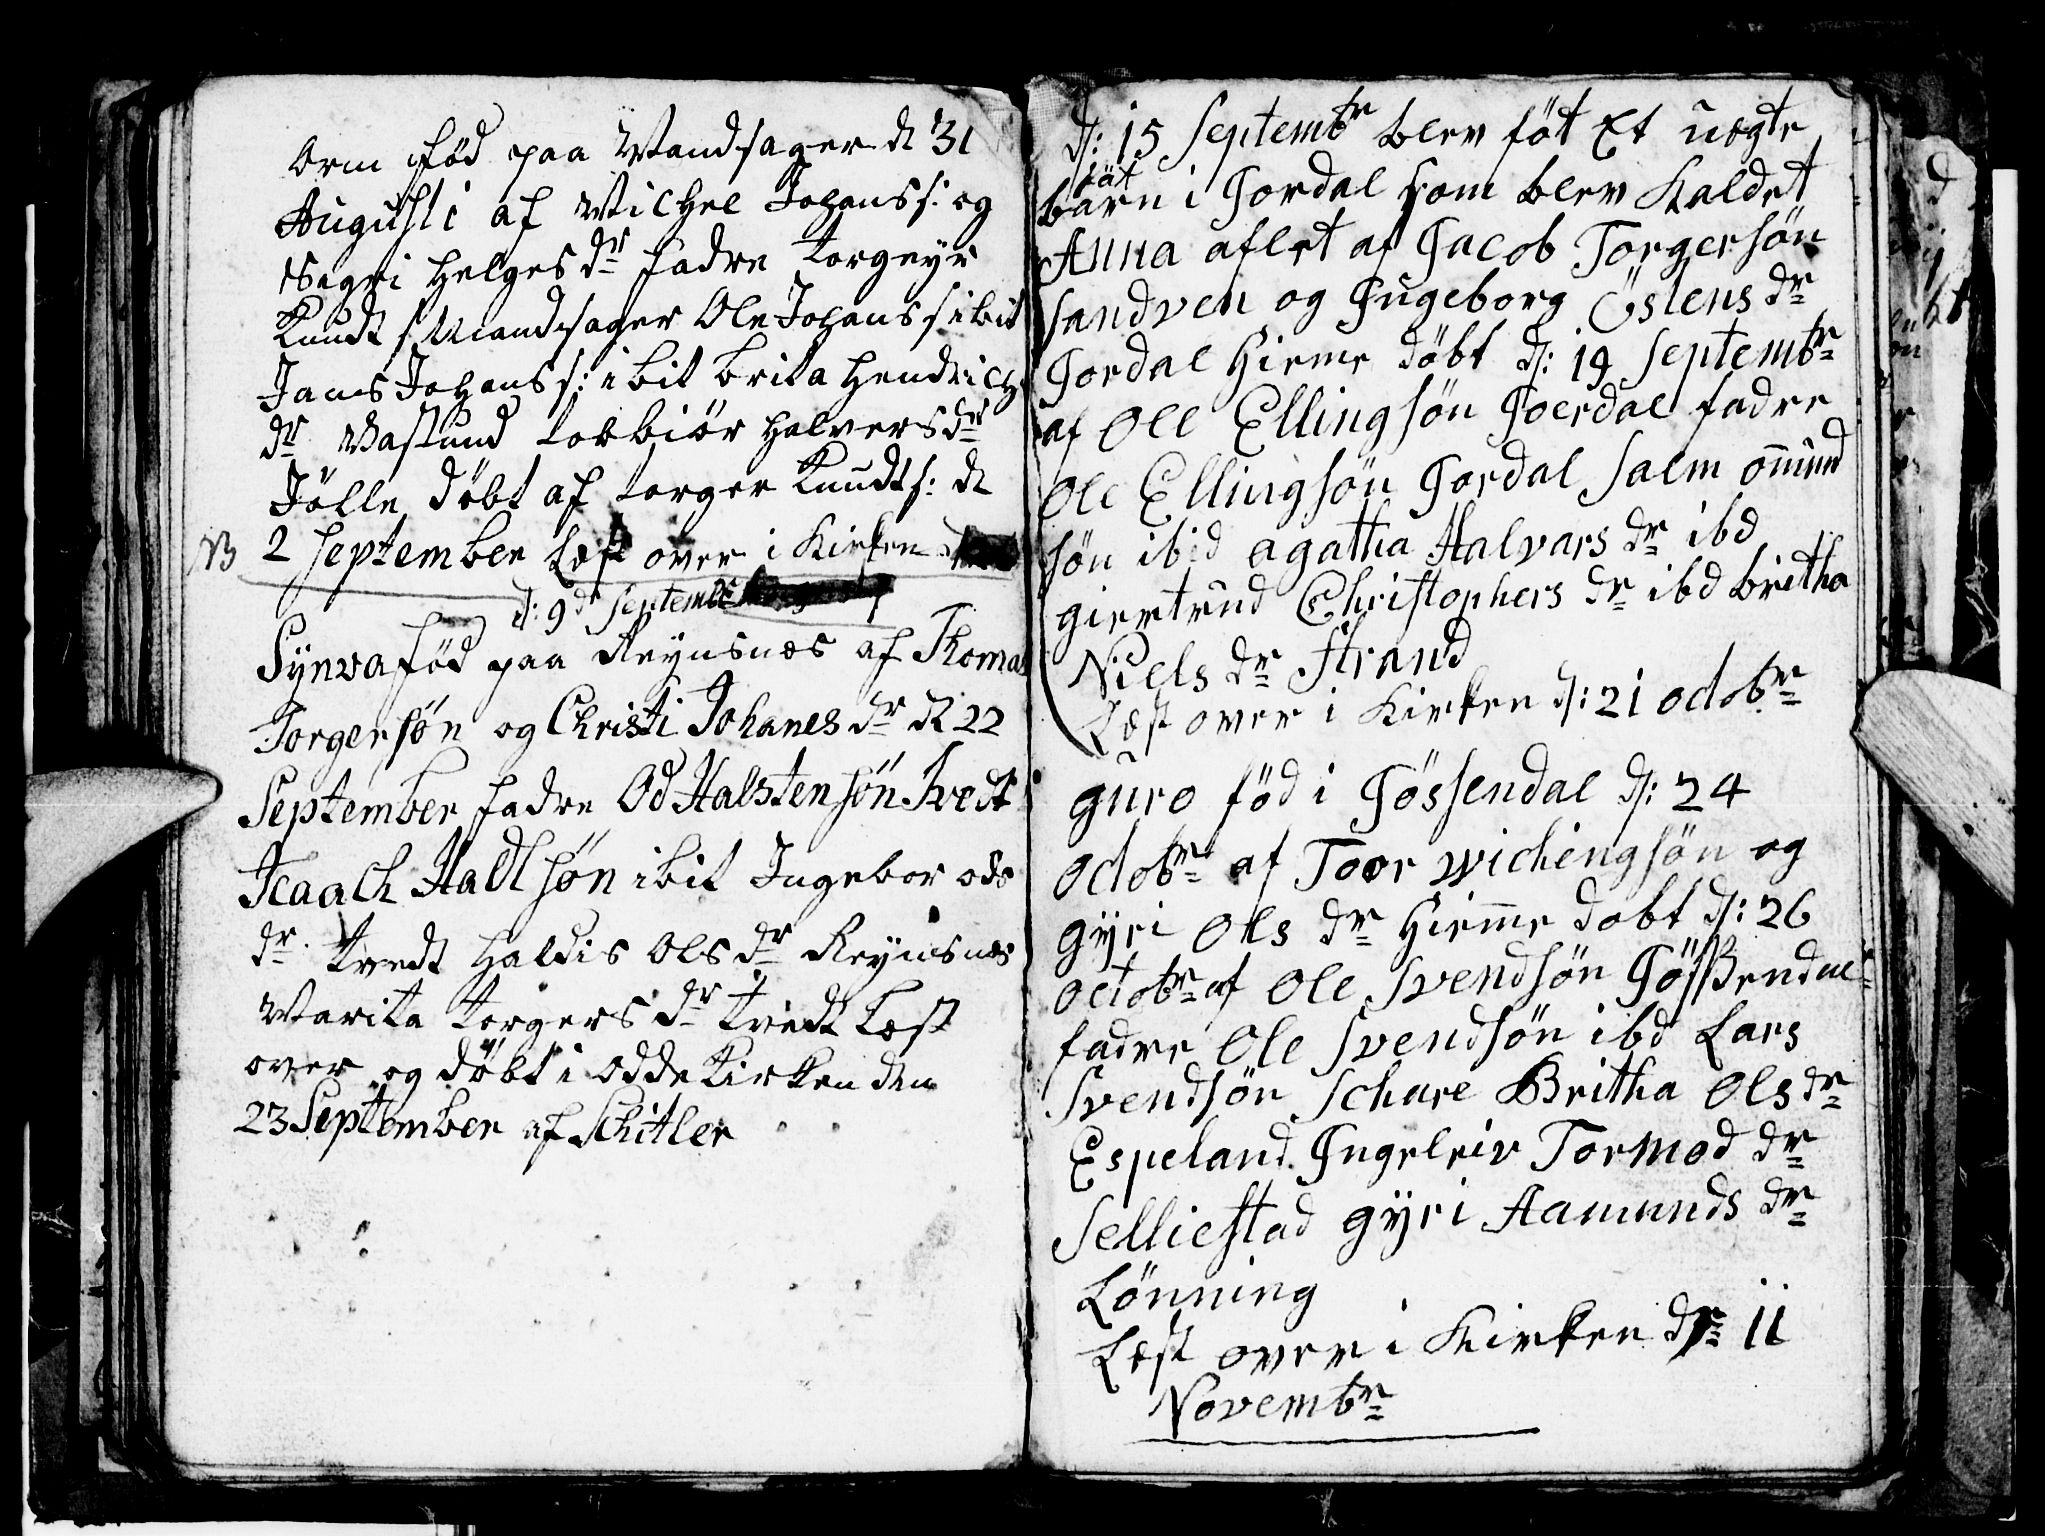 Orm fød paa Mandsager d 31
Augusti af Michel Johans s: og
Sygri Helges dr fadre Torgeyr
Knudt s Mandsager Ole Johans s ibit
Jams Johans s: ibit brita Hendrichs
dr Vastund torbiør Halvers dr
Jølle døbt af torger Knudts: d
NB 2 september Læst over i Kirken
d: 9d Septembr
Synva fød paa Reynsnæs af Thomas
Torgersøn og Christi Johanes dr d 22
September fadre Od Halstensøn Tvedt
Isaach Hadlsøn ibit Ingebor ods
dr. tvedt Haldis Ols dr Reynsnæs
Marita torgers dr tvedt Læst
over og døbt i Odde Kirken den
23 September af Schitler
d: 15 Septembr blev føt Et uægte
føt
barn i Jordal som blev Kaldet
Anna aflet af Jacob Torgersøn
Sandven og Ingeborg Östens dr
Jordal Hieme døbt d: 19 Septembr
af Ole Ellingsøn Joerdal fadre
Ole Ellingsøn Jordal Salm omund
søn ibid agatha Halvars dr ibd
giertrud Christophers dr ibd britha
Niels dr Strand
Læst over i Kirken d: 21 octobr
guro fød i Jössendal d: 24
octobr af Toor wichingsøn og
gyri Ols dr Hieme dobt d: 26
octobr af Ole Svendsøn Jössendal
fadre Ole Svendsøn ibd Lars
Svendsøn Schare Britha Ols dr
Espeland Ingeleiv Tormod dr
Selliestad gyri Aamunds dr
Lönning
Læst over i Kirken dr 11
Novembr